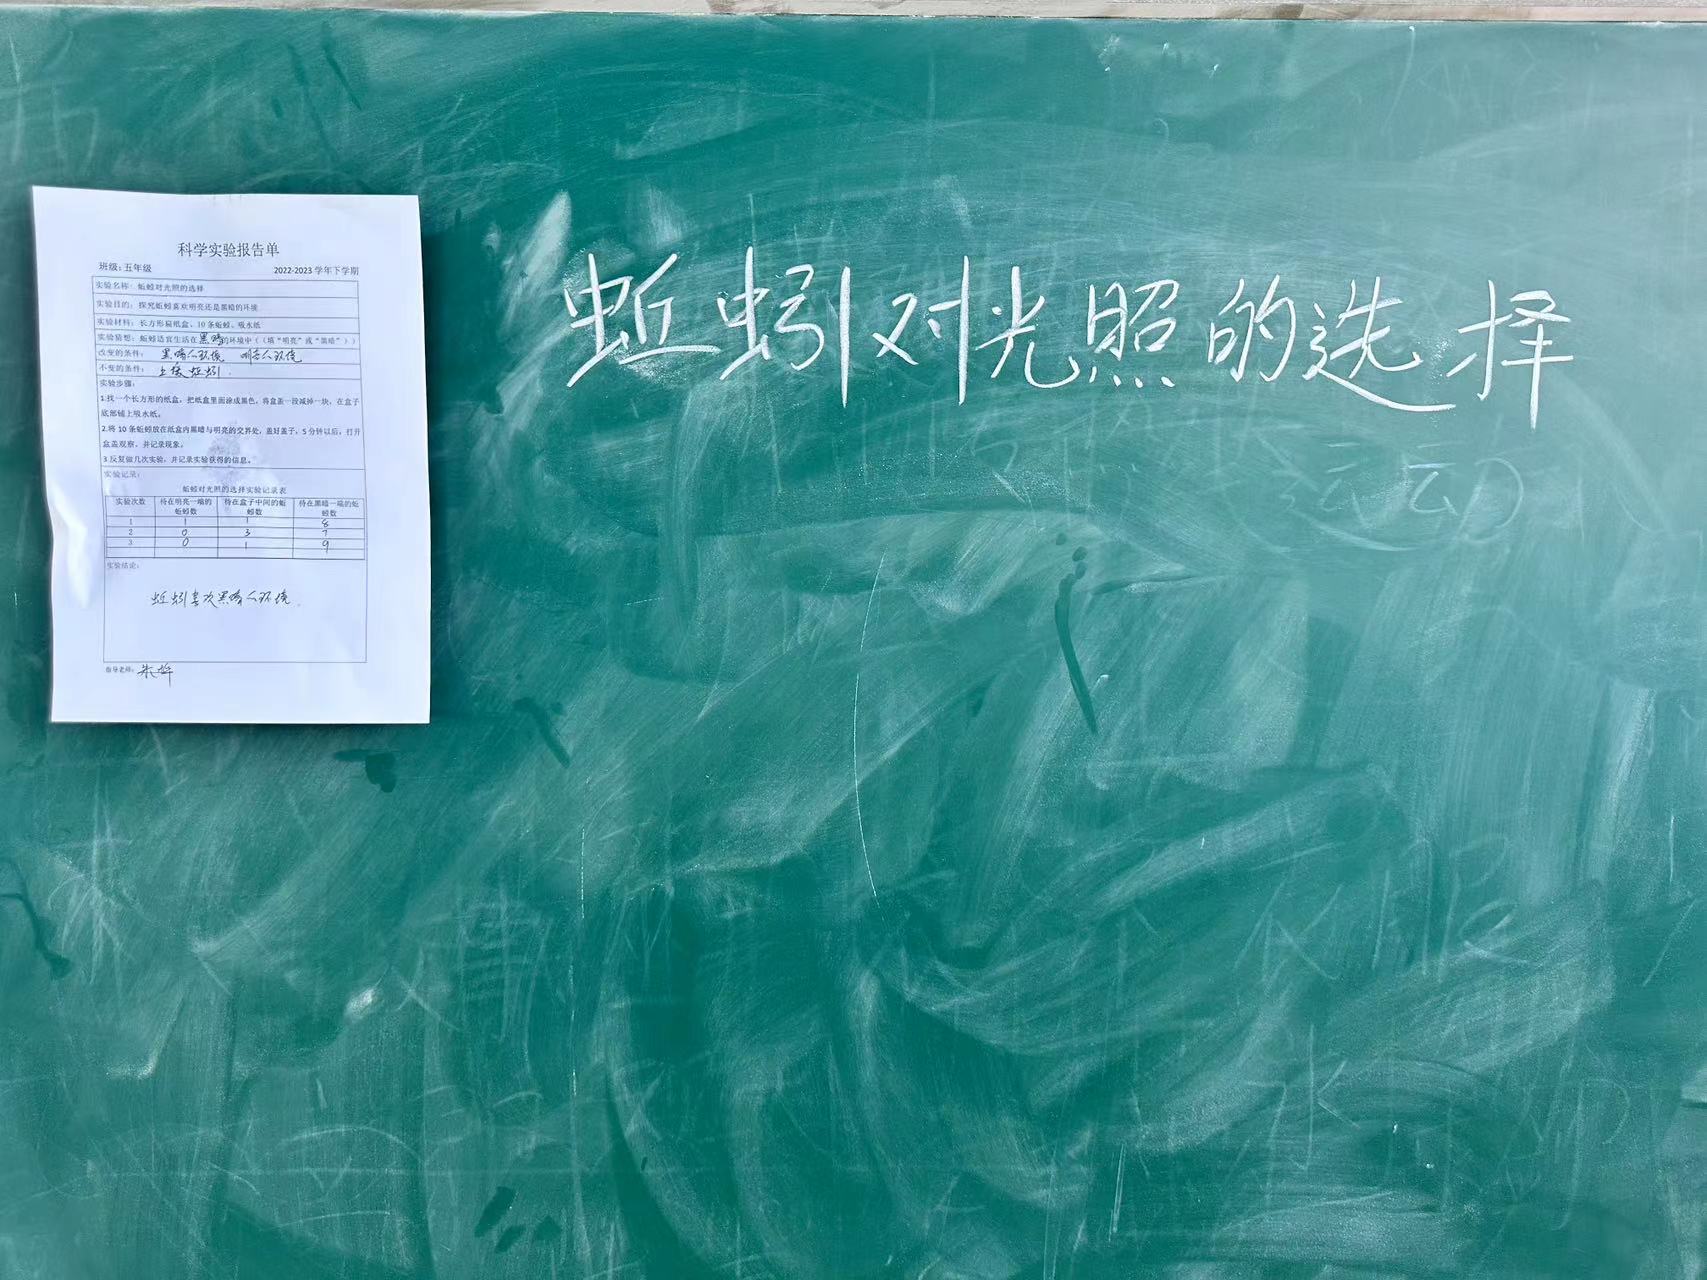 蚯蚓对光照的选择
科学实验报告单
班级：五年级 2022-2023 学年下学期
实验名称：蚯蚓对光照的选择
实验目的：探究蚯蚓喜欢明亮还是黑暗的环境
实验材料：长方形扁纸盒、10 条蚯蚓、吸水纸
实验猜想：蚯蚓适宜生活在黑暗的环境中（（填“明亮”或“黑暗”））
改变的条件：黑暗人环境 明亮人环境
不变的条件：土壤 蚯蚓.
实验步骤：
1.找一个长方形的纸盒，把纸盒里面涂成黑色，将盒盖一段减掉一块，在盒子
底部铺上吸水纸。
2.将 10 条蚯蚓放在纸盒内黑暗与明亮的交界处，盖好盖子，5 分钟以后，打开
盒盖观察，并记录现象。
3.反复做几次实验，并记录实验获得的信息。
实验记录：
蚯蚓对光照的选择实验记录表
实验次数 待在明亮一端的 待在盒子中间的蚯 待在黑暗一端的蚯
蚯蚓数 蚓数 蚓数
1 1 1 8
2 0 3 7
3 0 1 9
实验结论：
蚯蚓喜欢黑暗人环境.
指导老师：朱